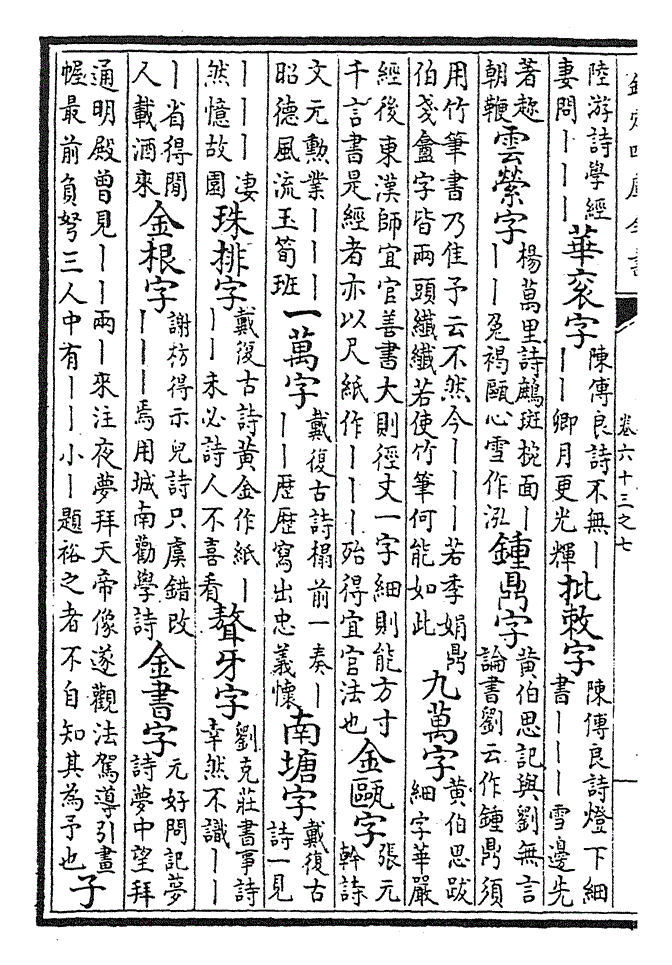 欽定四庫全書
卷六十三之七
陸游詩學經妻問｜｜｜華衮字陳傅良詩不無｜｜｜卿月更光輝批敕字陳傅良詩燈下細書｜｜｜雪邊先
著趂朝鞭雲縈字楊萬里詩鷓斑椀面｜｜｜兔褐甌心雪作泓鍾鼎字黄伯思記與劉無言論書劉云作鍾鼎須
用竹筆書乃佳予云不然今｜｜｜若季娟鼎伯戔盦字皆兩頭纖纖若使竹筆何能如此九萬字黄伯思跋細字華嚴
經後東漢師宜官善書大則徑丈一字細則能方寸千言書是經者亦以尺紙作｜｜｜殆得宜官法也金甌字張元幹詩
文元勲業｜｜｜昭德風流玉筍班一萬字戴復古詩榻前一奏｜｜｜歴歴寫出忠義懷南塘字戴復古詩一見
｜｜｜淒然憶故園珠排字戴復古詩黄金作紙｜｜｜未必詩人不喜看聱牙字劉克莊書事詩幸然不識｜｜
｜省得閒人載酒來金根字謝枋得示兒詩只虞錯改｜｜｜焉用城南勸學詩金書字元好問記夢詩夢中望拜
通明殿曾見｜｜兩｜來注夜夢拜天帝像遂觀法駕導引畫幄最前負弩三人中有｜｜小｜題裕之者不自知其為予也子